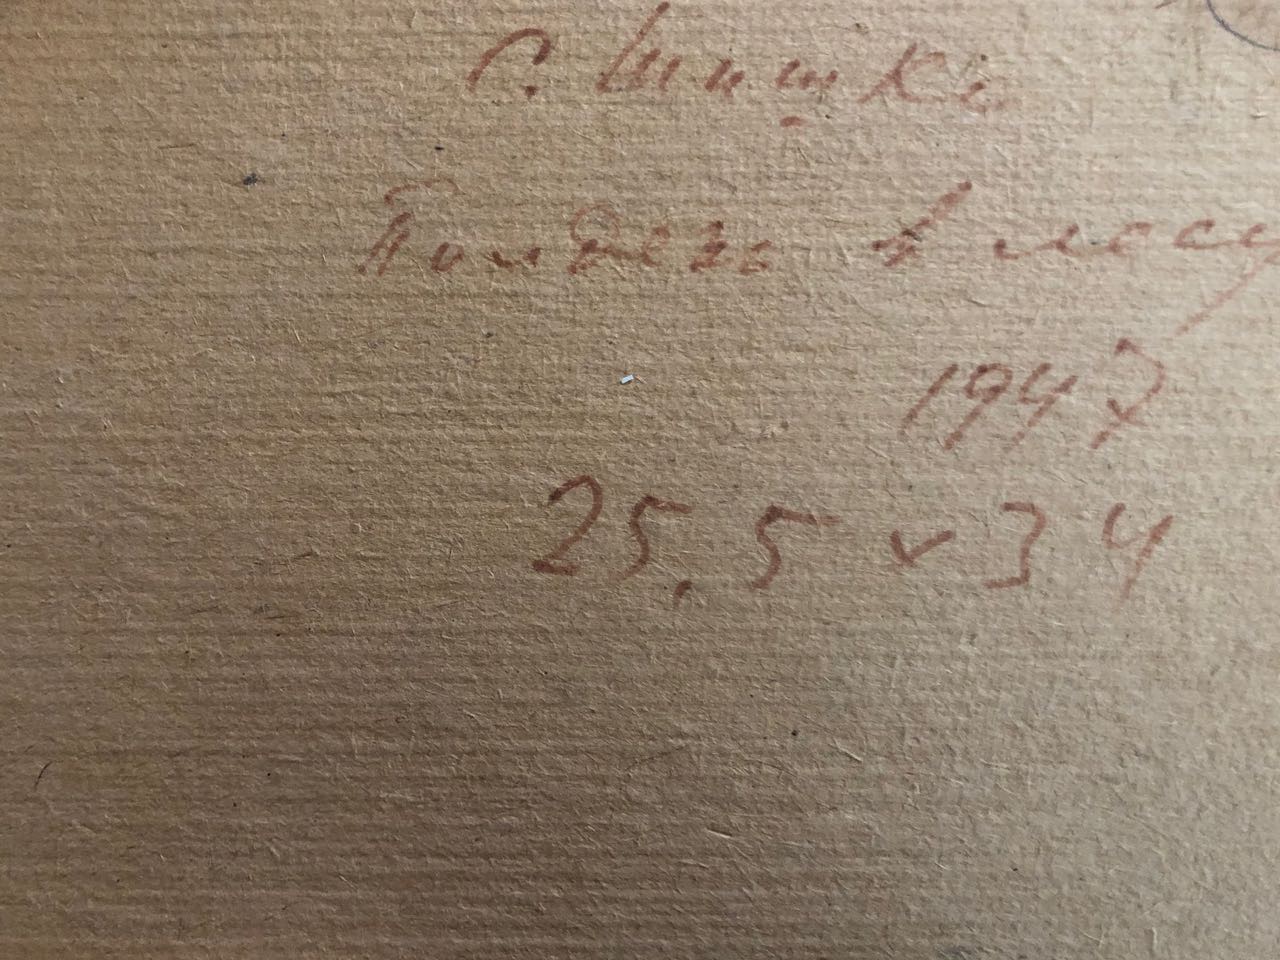 С. Шишко
Полдень в лесу
1947
25,5 x 34